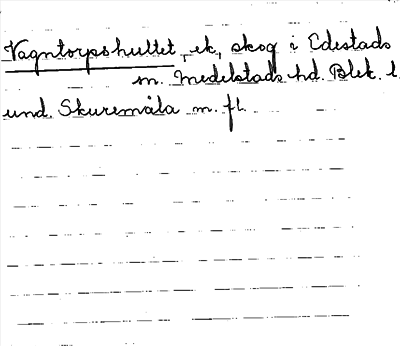 Vagntorpshultet, ek, skog i Edestads
m. Medelstads hd. Blek. l
und. Skuremåla m. fl.